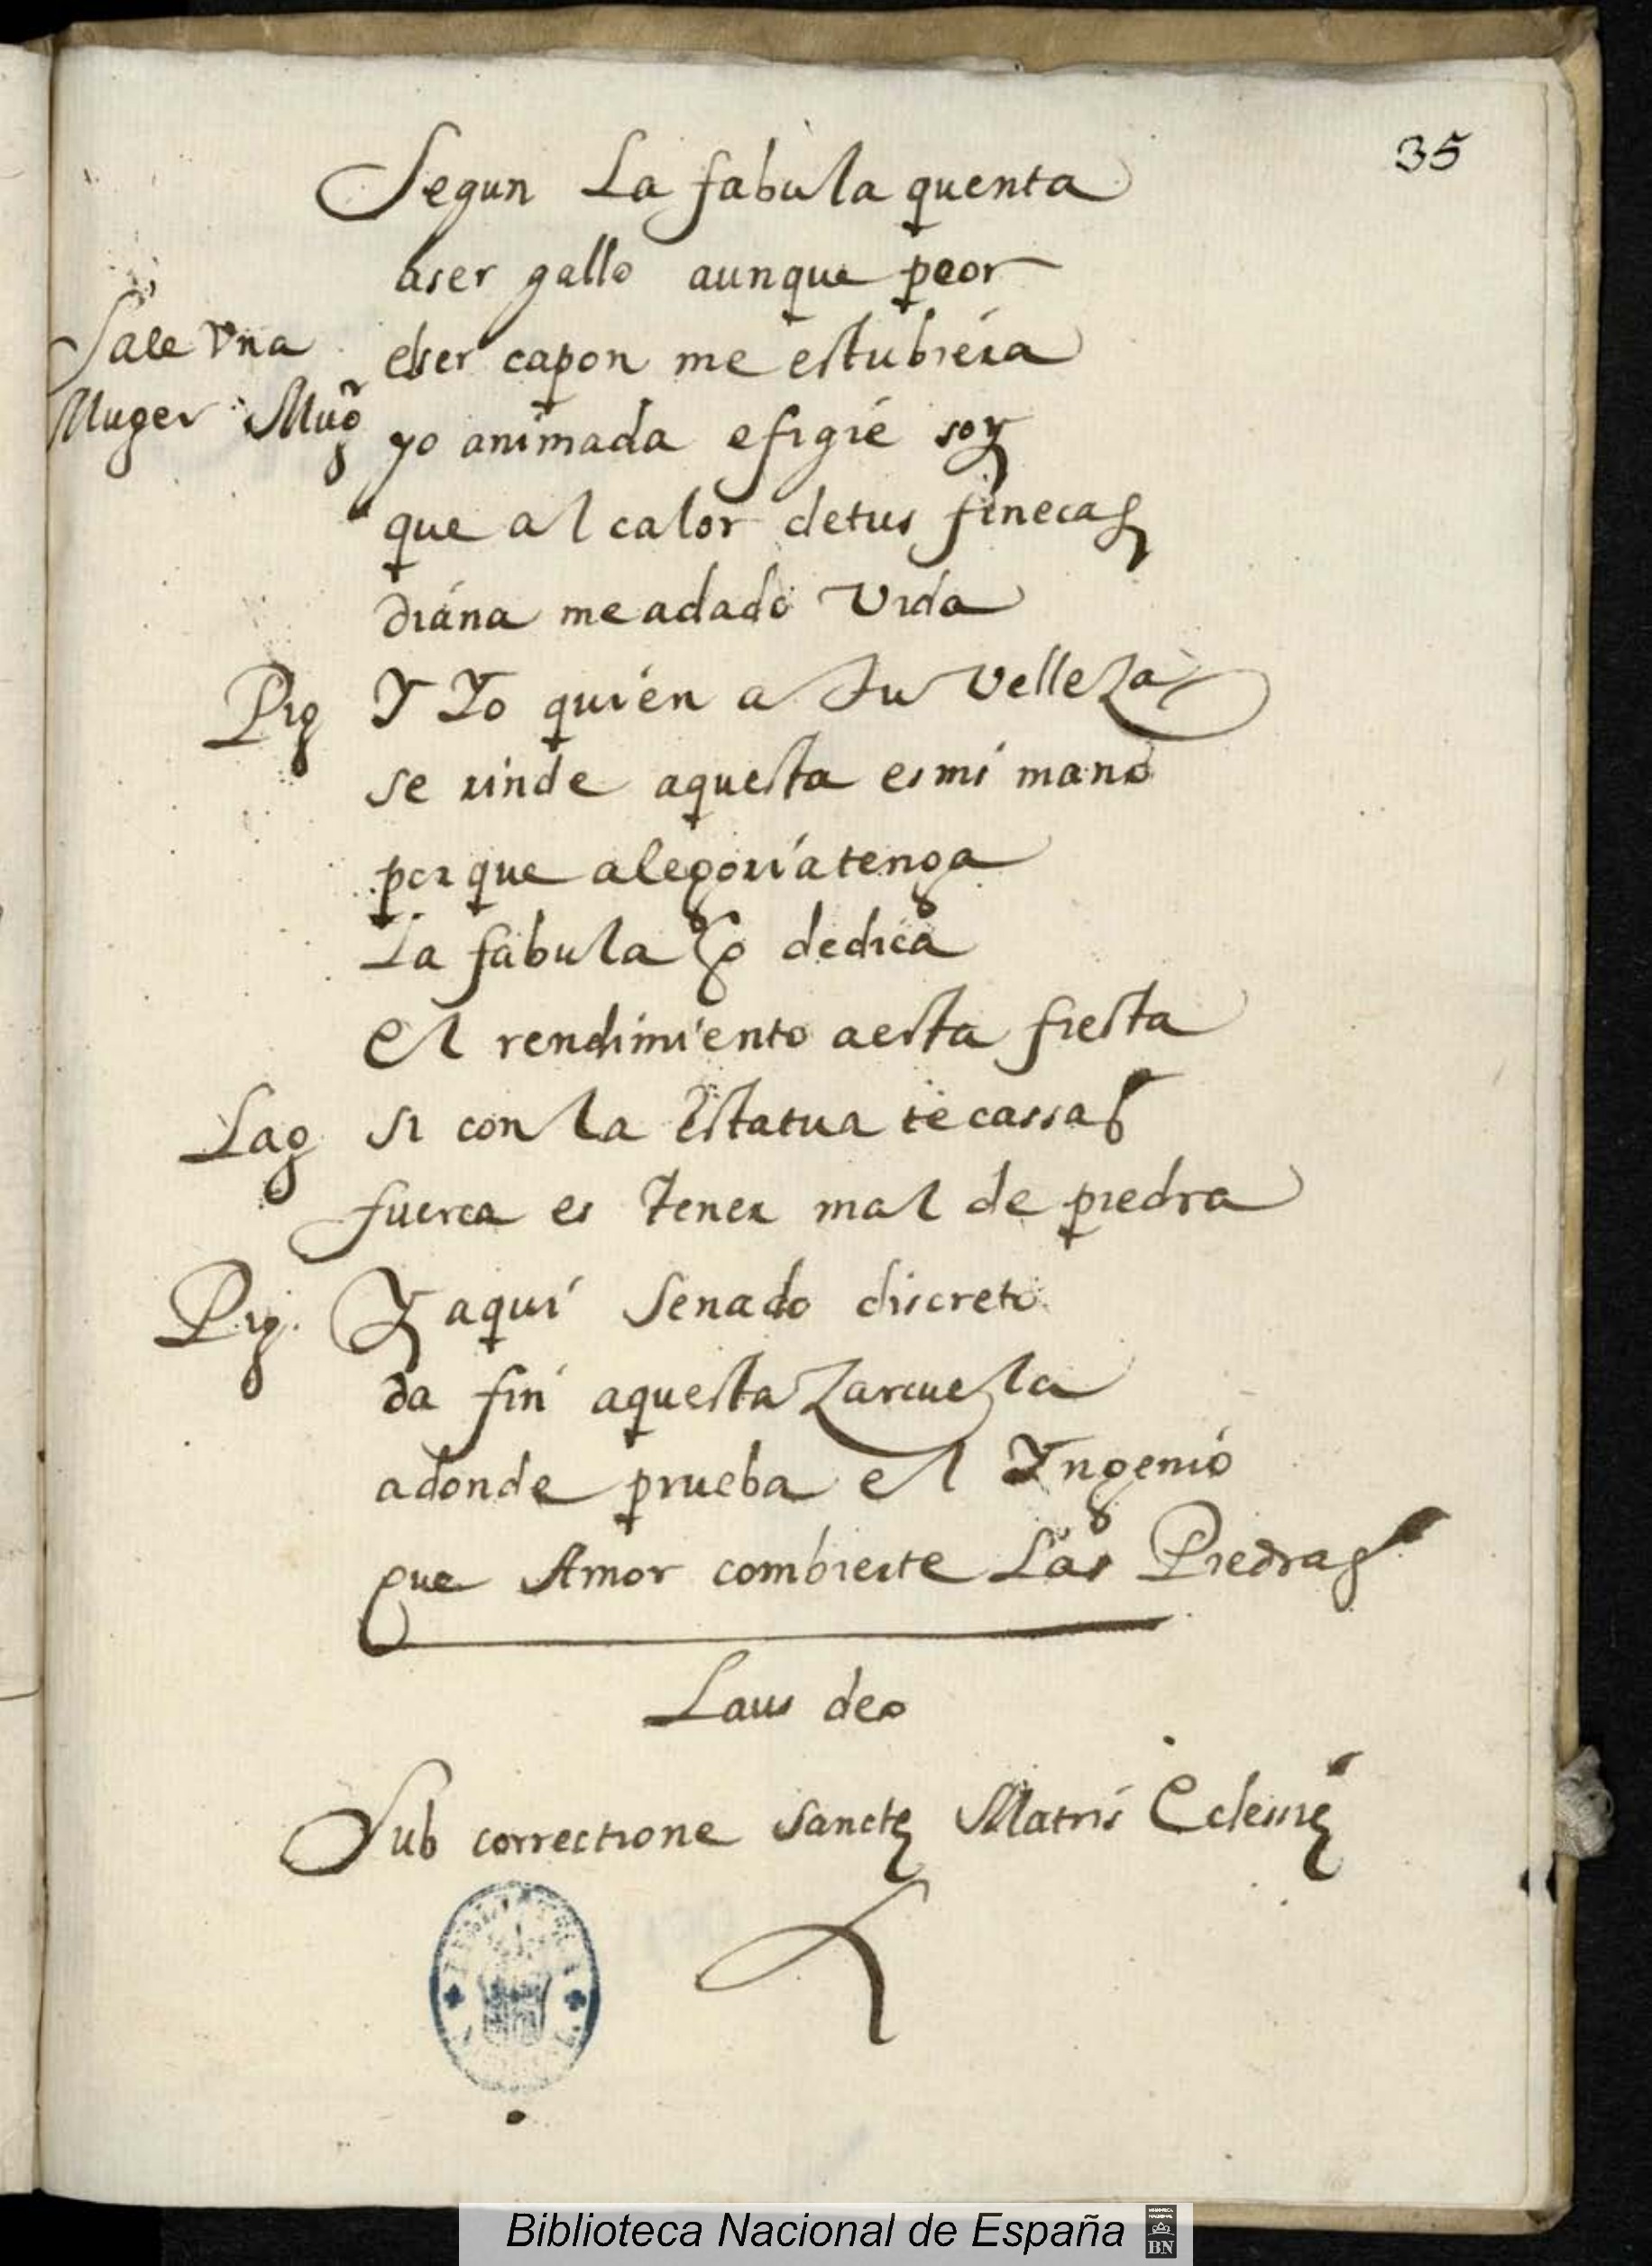 35
Segun La fabula quenta
aser gallo aunque peor
elser capon me estubiera
Sale Vna
Muger Mug yo animada efigie soy
que al calor detus finecas
diana me adado Vida
Pig Y Yo quien a Su Velleza
se rinde aquesta es mi mano
porque alegoria tenga
La fabula dedica
el rendimiento aesta fiesta
Lag si con la Estatua te cassas
fuerca es tener mal de piedra
Pig. Y aqui Senado discreto
da fin aquesta Zarcuela
adonde prueba el Yngenio
que Amor combierte Las Piedras
Laus deo
Sub correctione Sancte Matris Eclesie
Biblioteca Nacional de España
BN